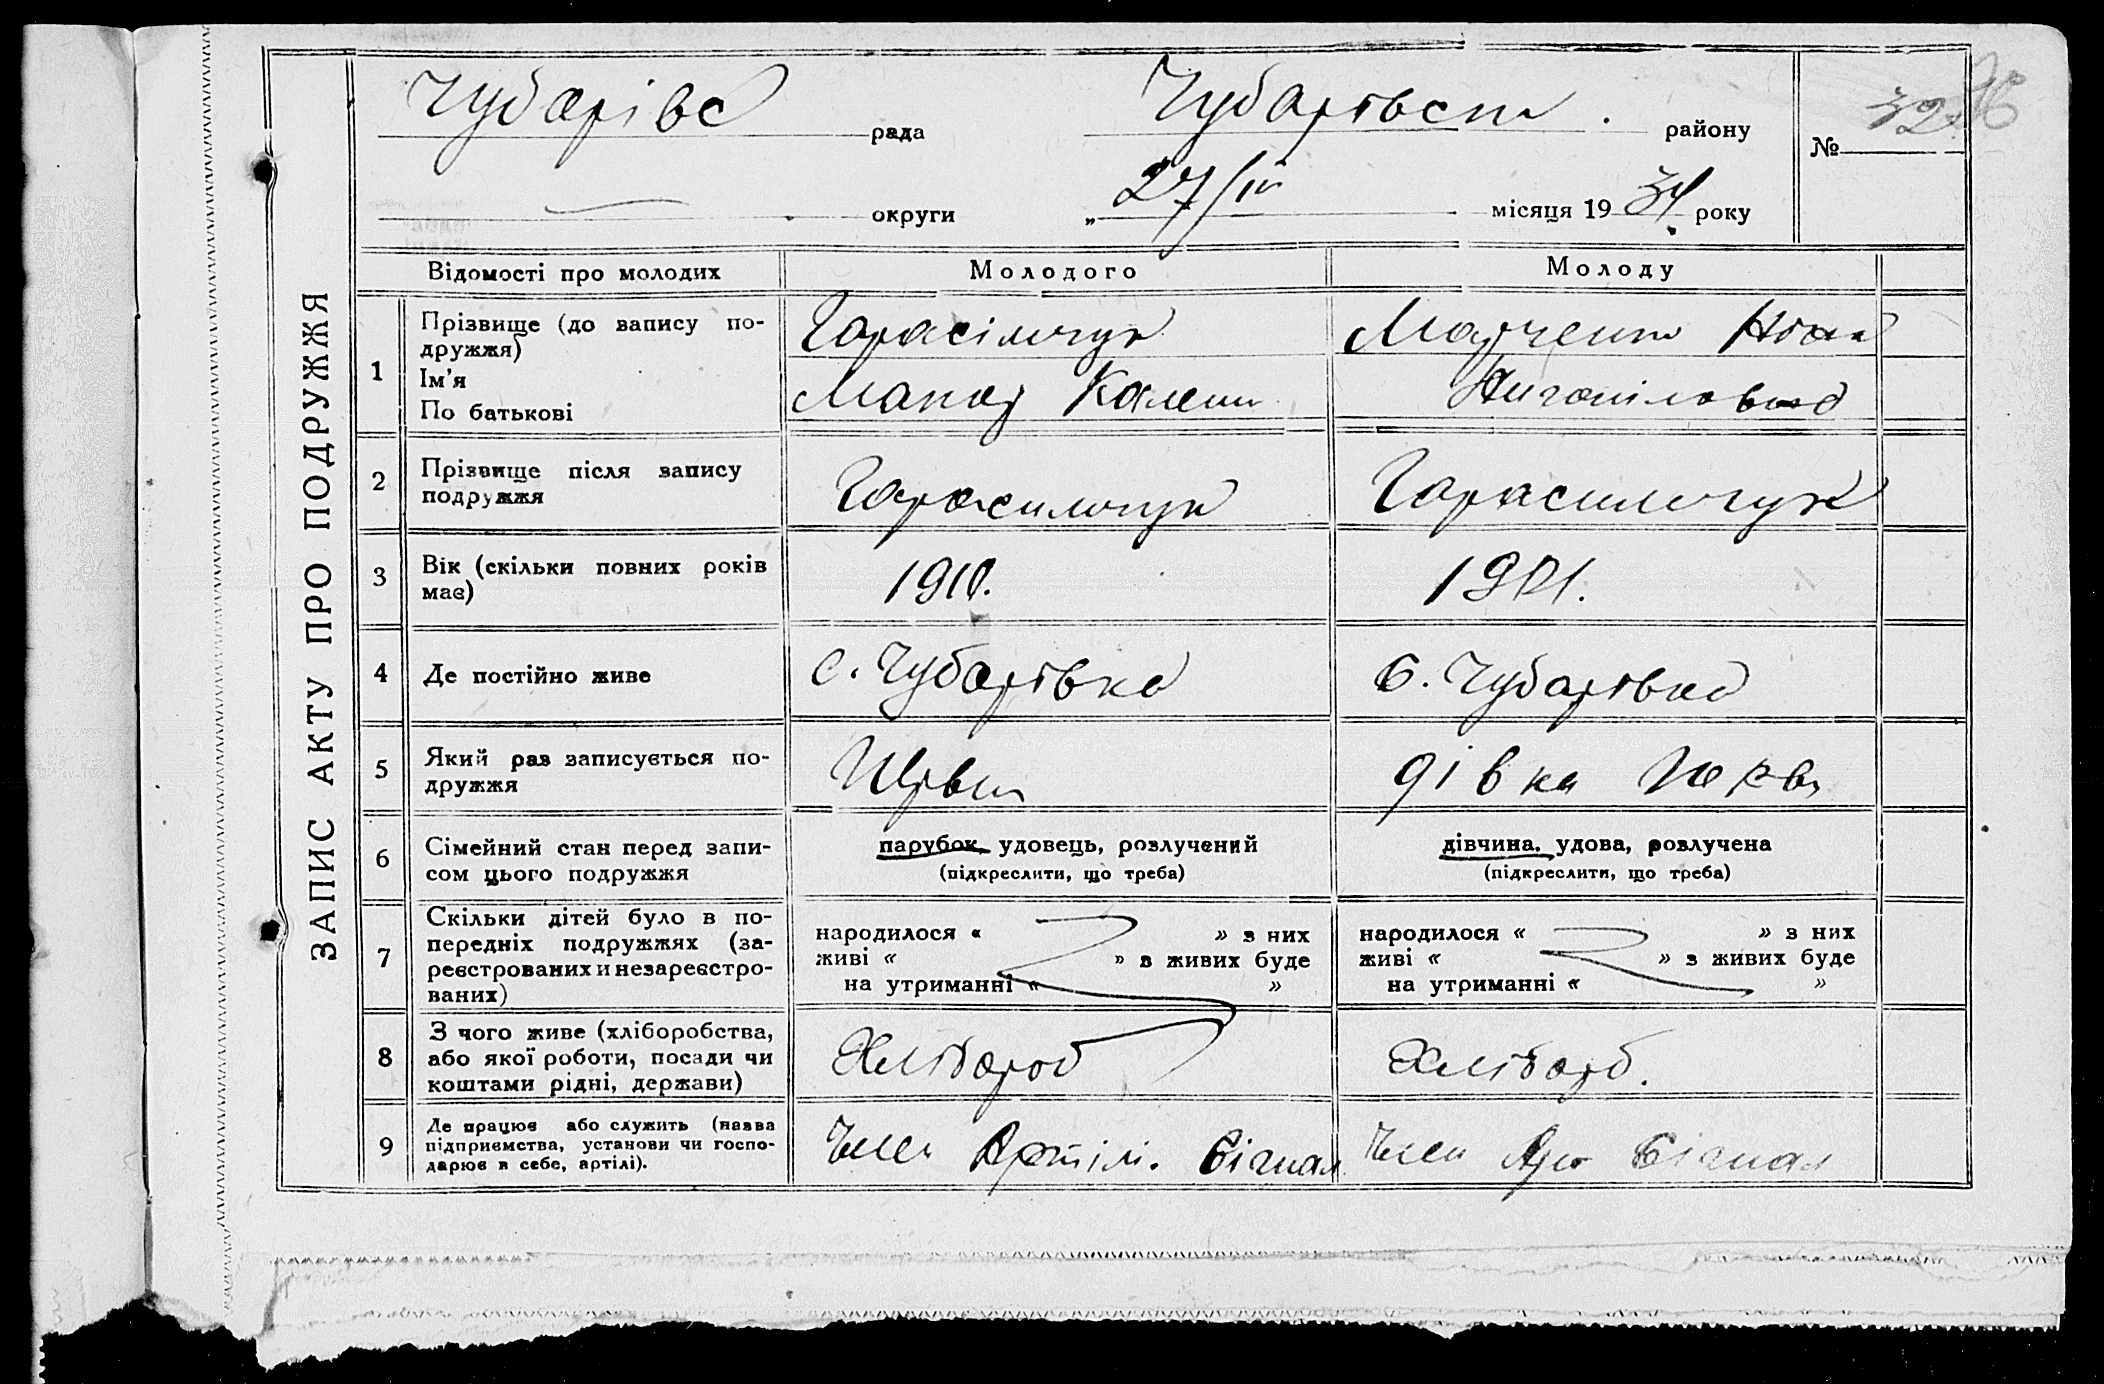 ЗАПИС АКТУ ПРО ПОДРУЖЖЯ
Чубарівс рада Чубарівськ. району № 32
округи „27/IV місяця 1934 року
Відомості про молодих Молодого Молоду
1 Прізвище (до запису по-
дружжя)
Ім'я
По батькові
Гарасімчук
Макар Калени
Марченко
2 Прізвище після запису
подружжя
Гарасимчук Гарасимчук
3 Вік (скільки повних років
має)
1910.
4 Де постійно живе с. Чубарівка с. Чубарівка
5 Який раз записується по-
дружжя
Перви дівка Перв
6 Сімейний стан перед запи-
сом цього подружжя
парубок, удовець, розлучений
(підкреслити, що треба)
дівчина, удова, розлучена
(підкреслити, що треба)
7 Скільки дітей було в по-
передніх подружжях (за-
реєстрованих и незареєстро-
ваних)
народилося « » з них
живі « » з живих буде
на утриманні « »
народилося « » з них
живі « » з живих буде
на утриманні « »
8 З чого живе (хліборобства,
або якої роботи, посади чи
коштами рідні, держави)
Хлібороб Хліборб.
9 Де працює або служить (назва
підприємства, установи чи госпо-
дарює в себе, артілі).
Член Артілі. Сігнал Член Арт Сігнал